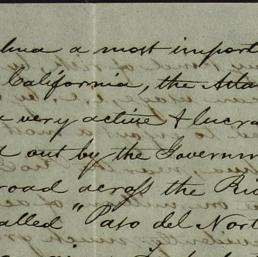 a most import
California, the Atla
a very active & lucra
out by the Governm
road across the Ri
called "Paso del Nort